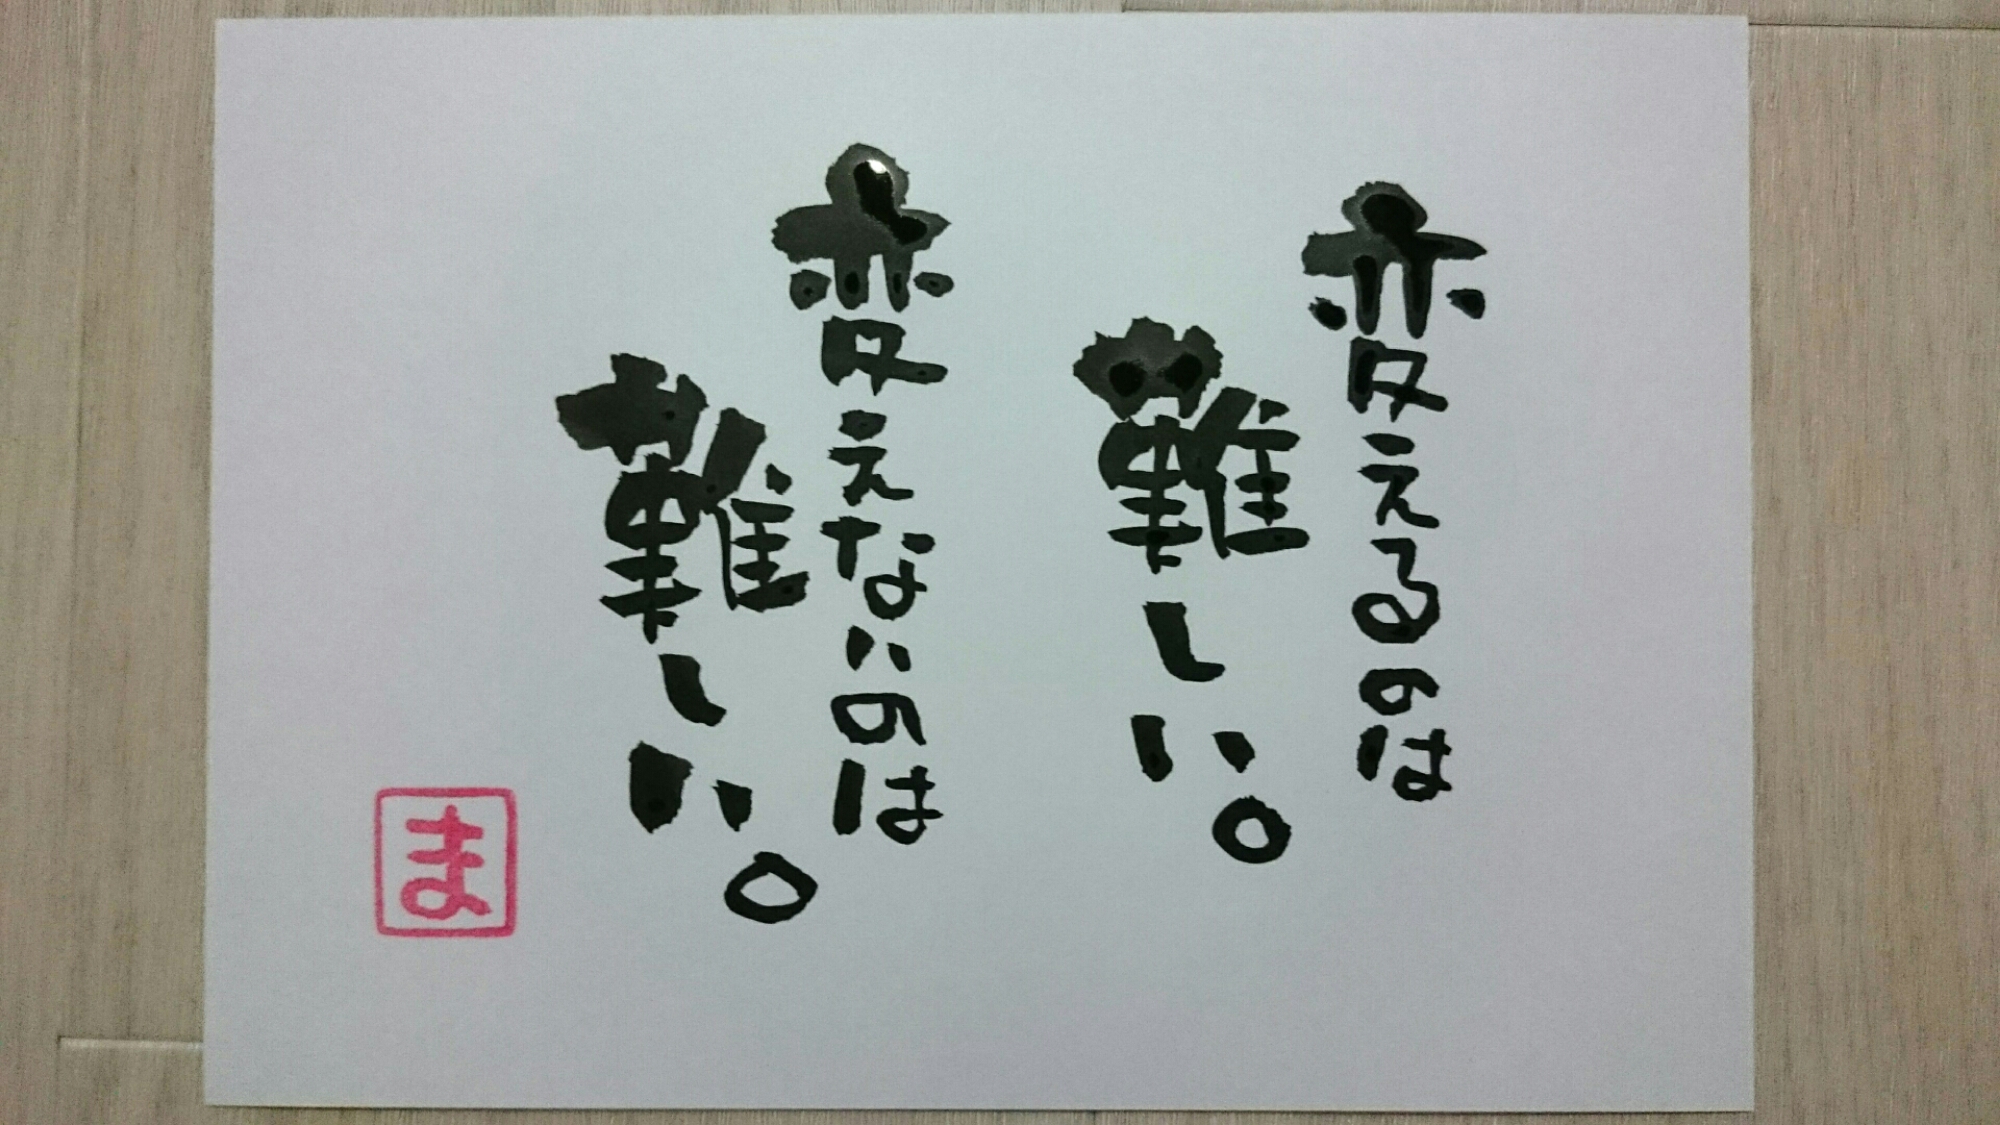 変えるのは
難しい。
変えないのは
難しい。
ま